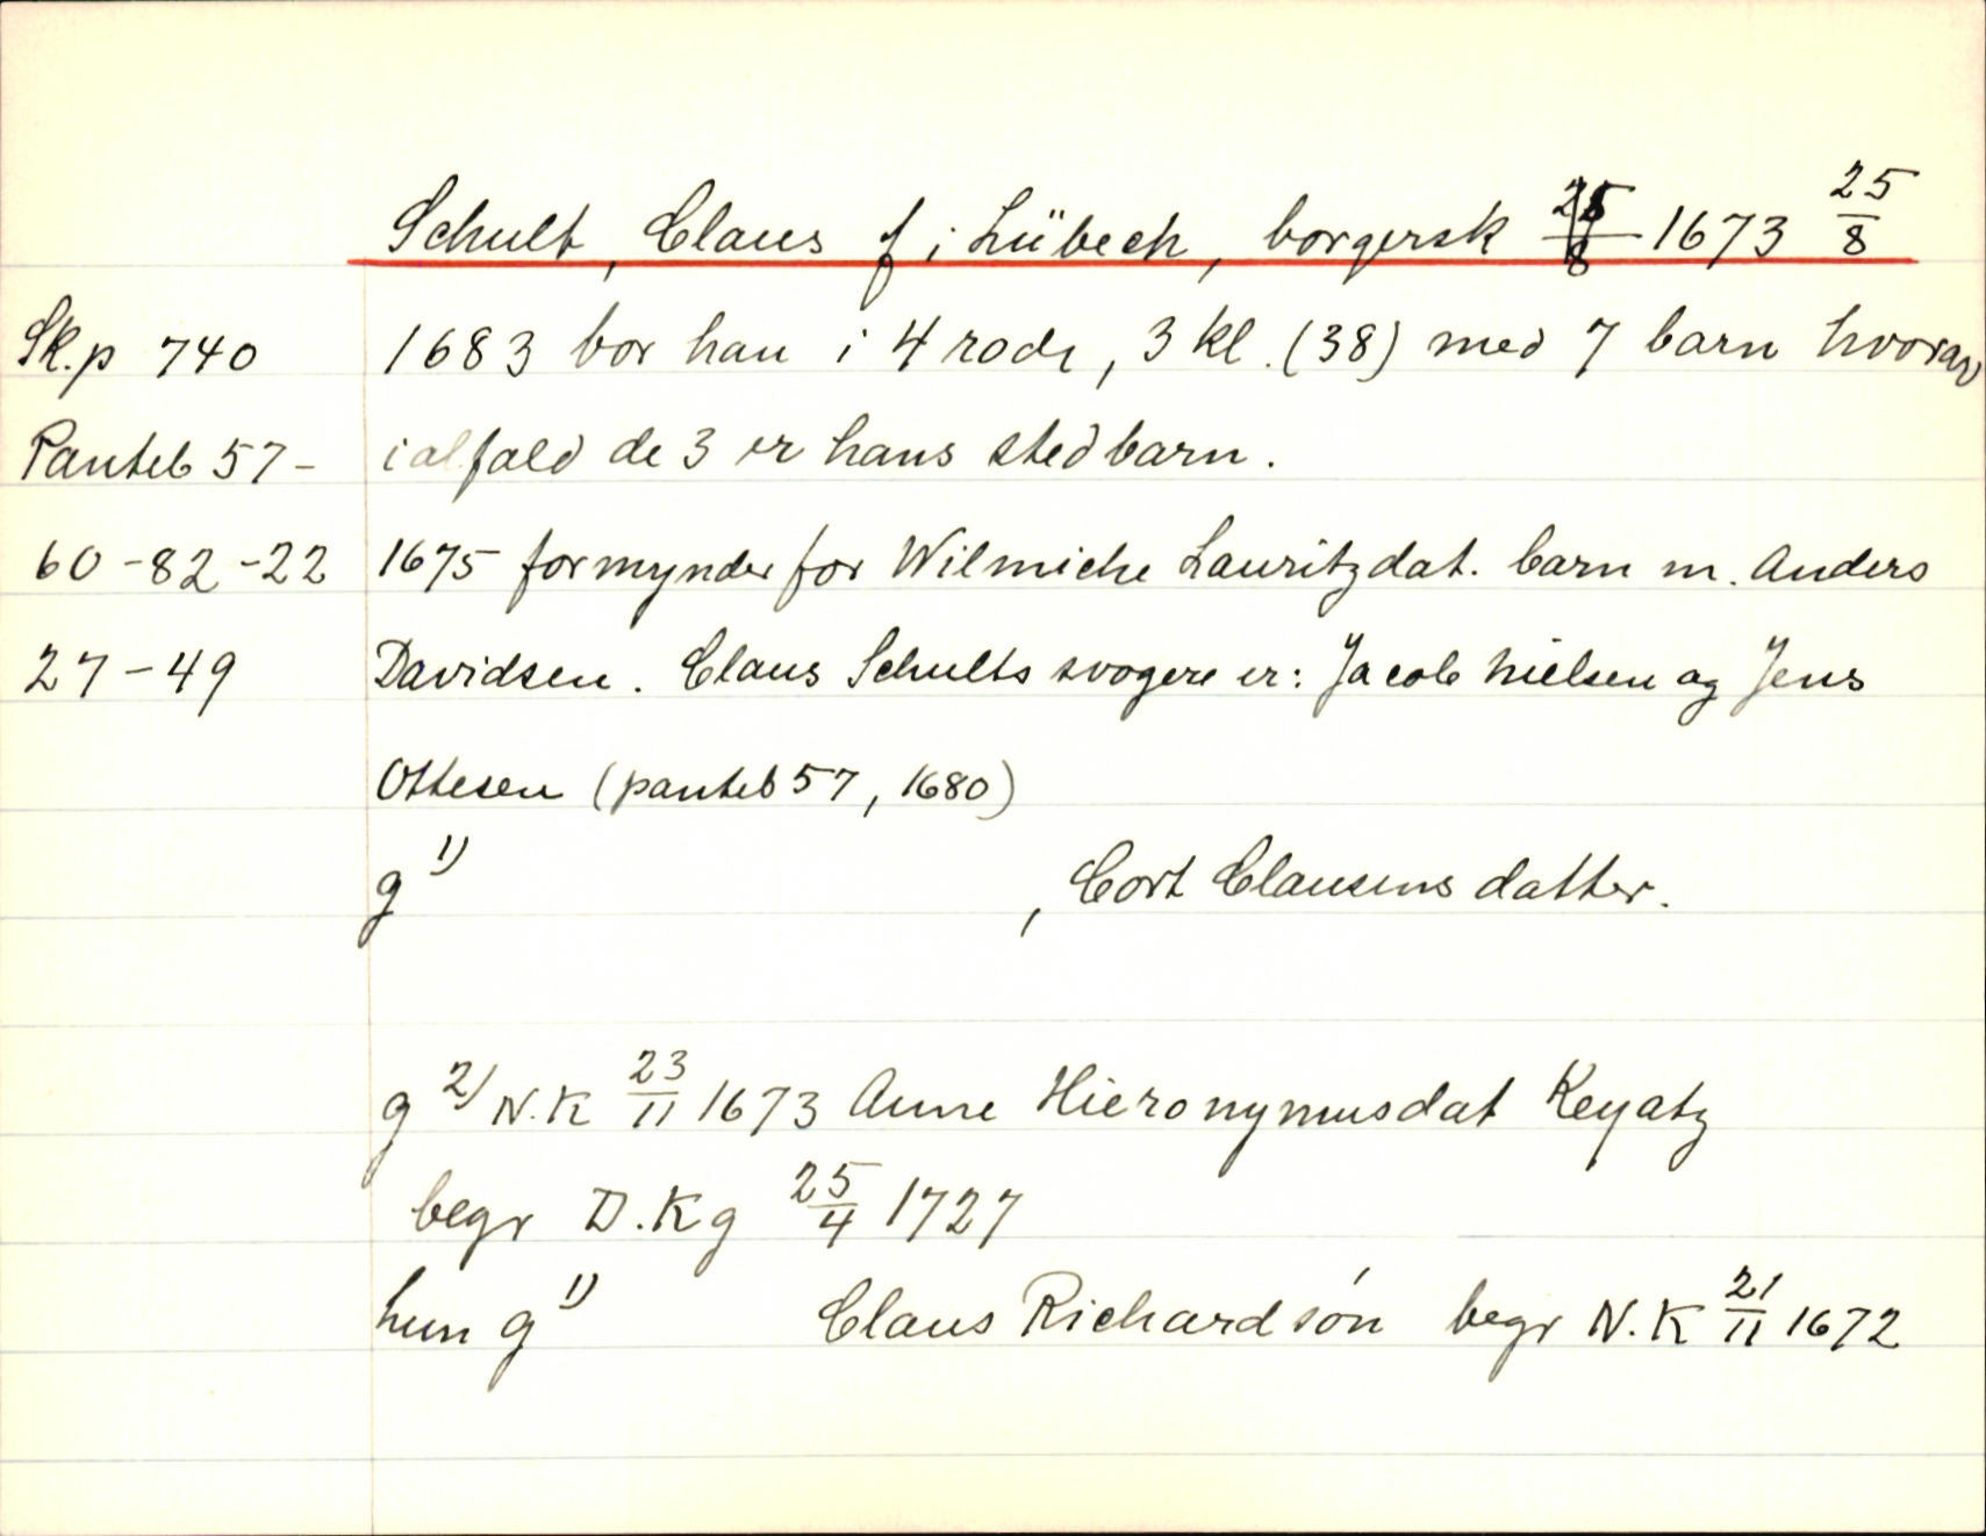 Schult, Claus f i Lübech, borgersk 1673 25/8
Sk.p 740 1683 bor han i 4 rode, 3 kl. (38) med 7 barn hvorav
Panteb 57- ialfald de 3 er hans stedbarn.
60-82-22 1675 formynder for Wilmiche Lauritzdat. barn m. Anders
27-49 Davidsen. Claus Schults svogere er: Jacob Nielsen og Jens
Ottesen (panteb 57, 1680)
g 1) , Cort Clausens datter.
g 2) N.K 23/11 1673 Anne Hieronymusdat Keyatz
begr D.Kg 25/4 1727
hun g 1) Claus Richardson begr N.K 21/11 1672